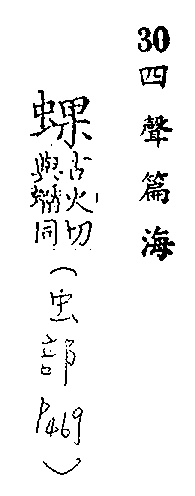 30 四聲篇海
蜾 古火切
與同
(虫部
P469)